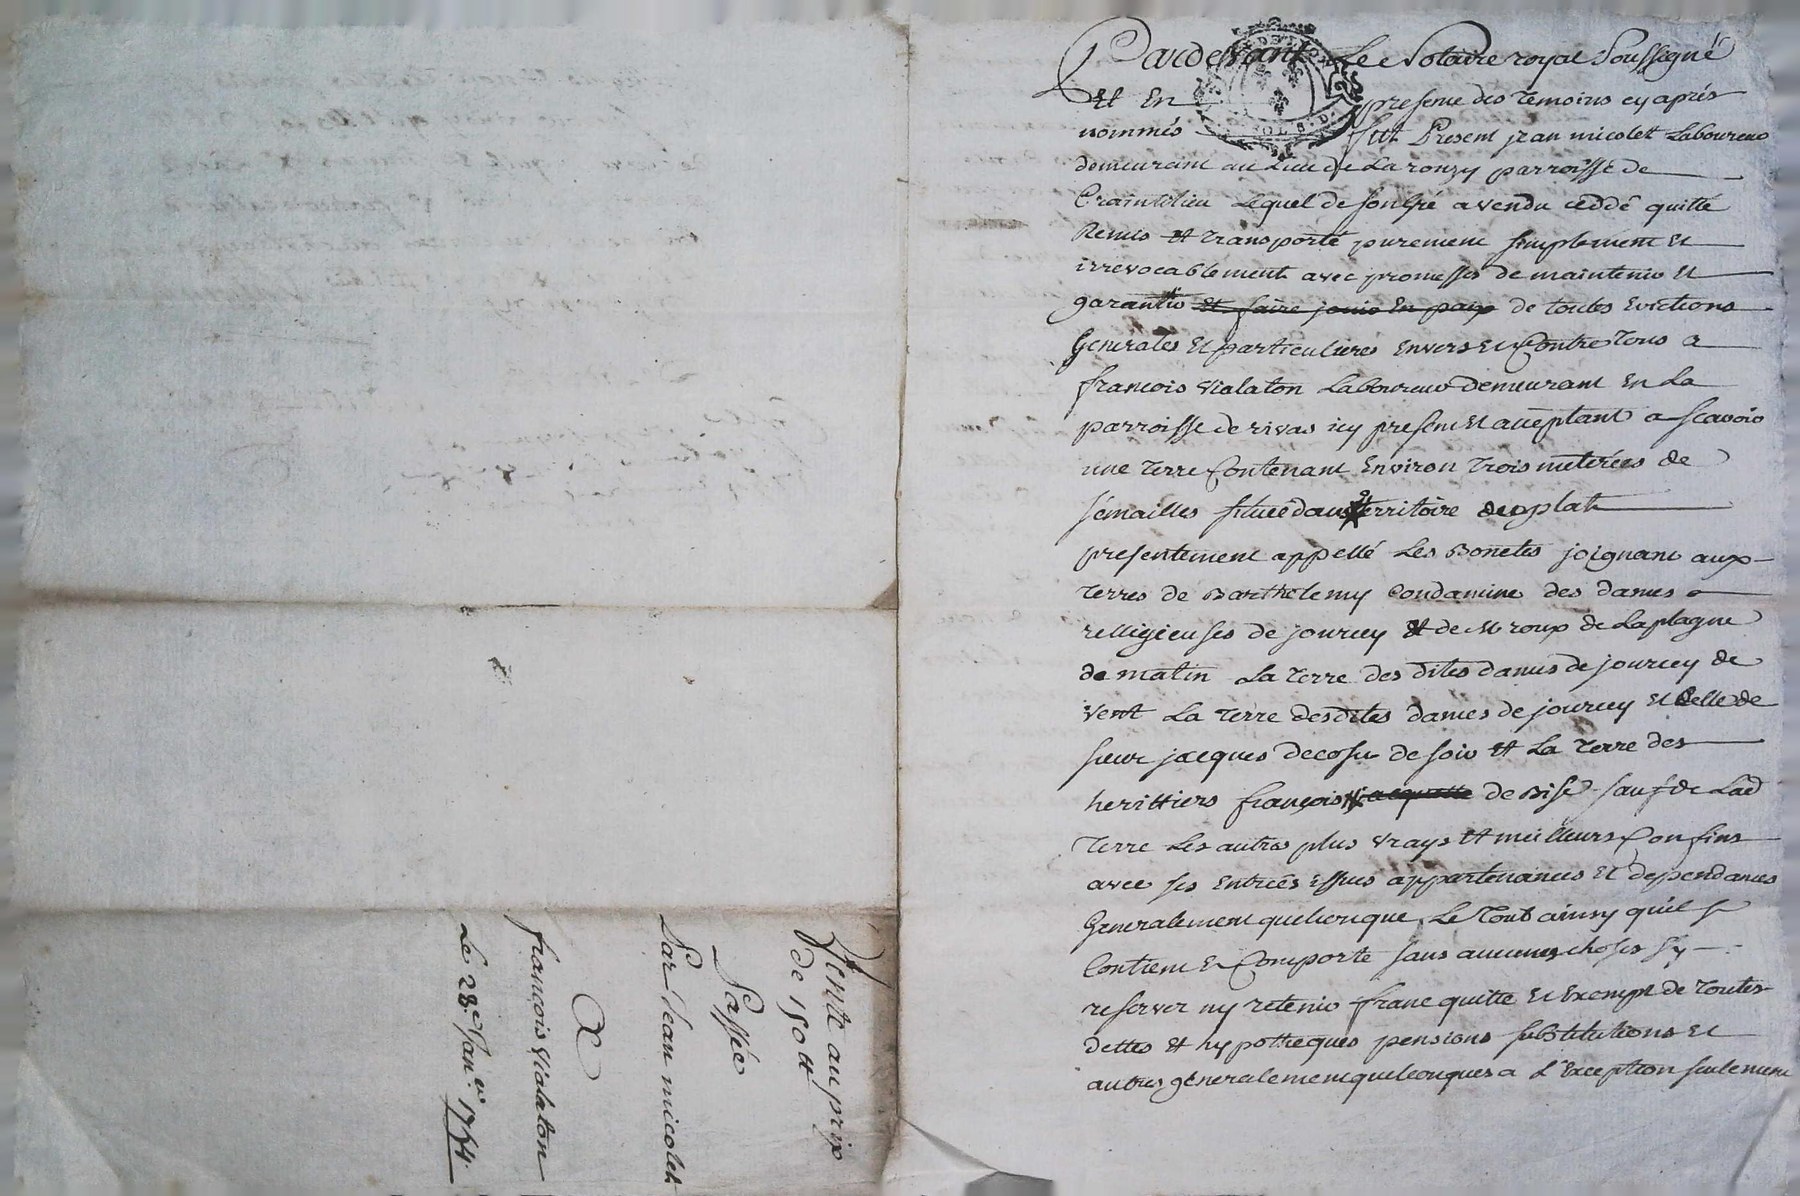 Pardevant Le Notaire royal Soussigné
Et En presence des temoins cy aprés
nommés fut Present jean micolet Laboureur
demeurant au Lieu de La ronzy parroisse de
Craintilieu Lequel de son gré a vendu ceddé quitté
Remis et transporté purement simplement et
irrevocablement avec promesses de maintenir et
garantir et faire jouir En paix de toutes Evictions
Generales et particulieres Envers et Contre tous a
françois vialaton Laboureur demeurant En La
parroisse de rivas icy present et acceptant a scavoir
une terre Contenant Environ trois meterées de
semailles située dans territoire du plat
presentement appellé Les Bonetes joignant aux
terres de Barthelemy Condamine des dames
relligieuses de jourcey et de Mr roux de Laplagne
de matin La terre des dites dames de jourcey de
vent La terre desdites dames de jourcey et Celle de
sieur jacques de soir et La terre des
herittiers françois de Bise sauf de Lad
terre Les autres plus vrays et meilleurs Confins
avec ses Entrées issues appartenances et dependances
Generalement quelconque, Le tout ainsy qu'il se
Contient et Comporte sans aucunes choses s'y
reserver ny retenir franc quitte et Exempt de toutes
dettes et hypotheques pensions substitutions et
autres generalement quelconques a L'Exception seulement
Vente au prix
de 150 tt
Passée
Par Jean micolet
A
françois vialaton
Le 28e Janer 1754